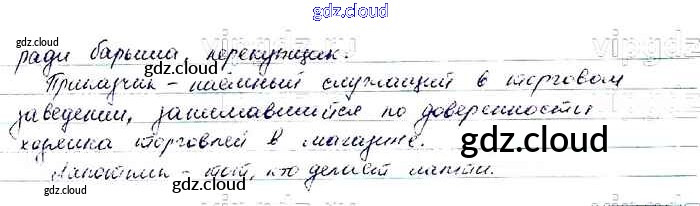 gdz.cloud
ради барыша, перекупщик.
gdz.cloud
Приказчик - наёмный служащий в торговом
заведении, занимавшийся по доверенности
хозяина торговлей в магазине.
gdz.cloud
gdz.cloud
- тот, кто делает лапти.
gdz.cloud